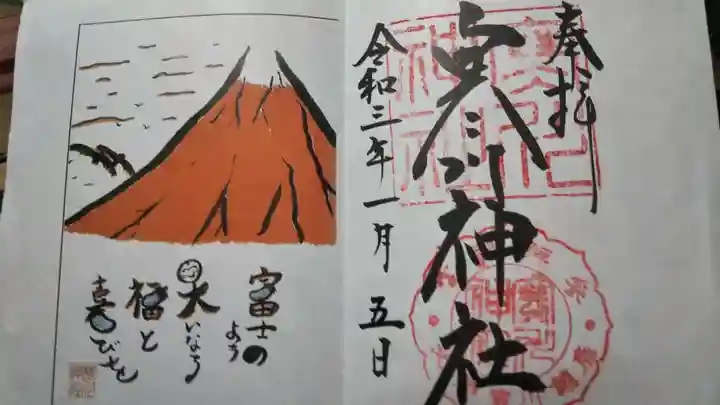 奉拝
寒川神社
令和三年一月五日
富士の
よう
大いなる
福と
喜びを